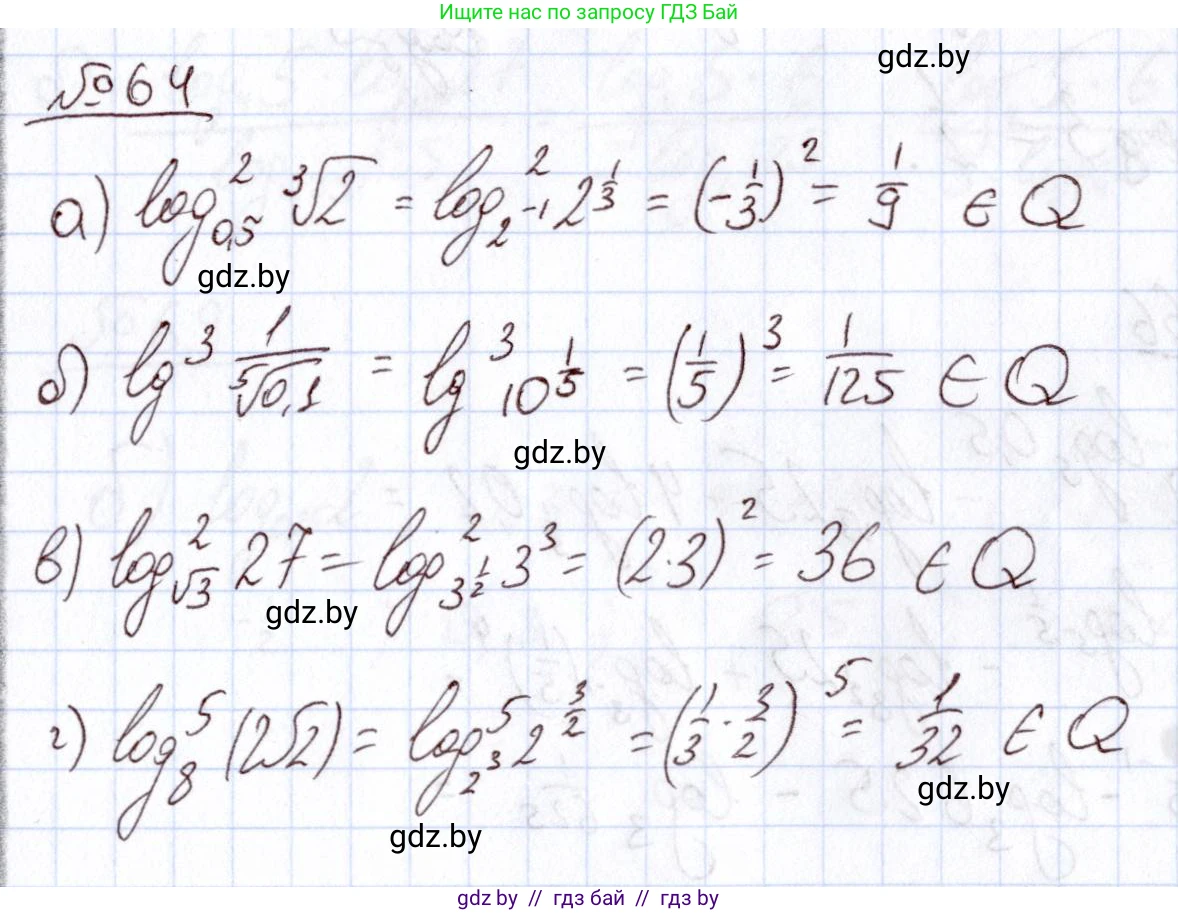 Ищите нас по запросу ГДЗ Бай
gdz.by
№ 64
а) log²_{0,5} ∛2 = log²_{2^{-1}} 2^{1/3} = (-1/3)² = 1/9 ∈ Q
gdz.by
б) lg³ 1/⁵√0,1 = lg³ 10^{1/5} = (1/5)³ = 1/125 ∈ Q
gdz.by
в) log²_{√3} 27 = log²_{3^{1/2}} 3³ = (2·3)² = 36 ∈ Q
gdz.by
г) log⁵_8 (2√2) = log⁵_{2³} 2^{3/2} = (1/3 · 3/2)⁵ = 1/32 ∈ Q
gdz.by
gdz.by
gdz.by // гдз бай // гдз by